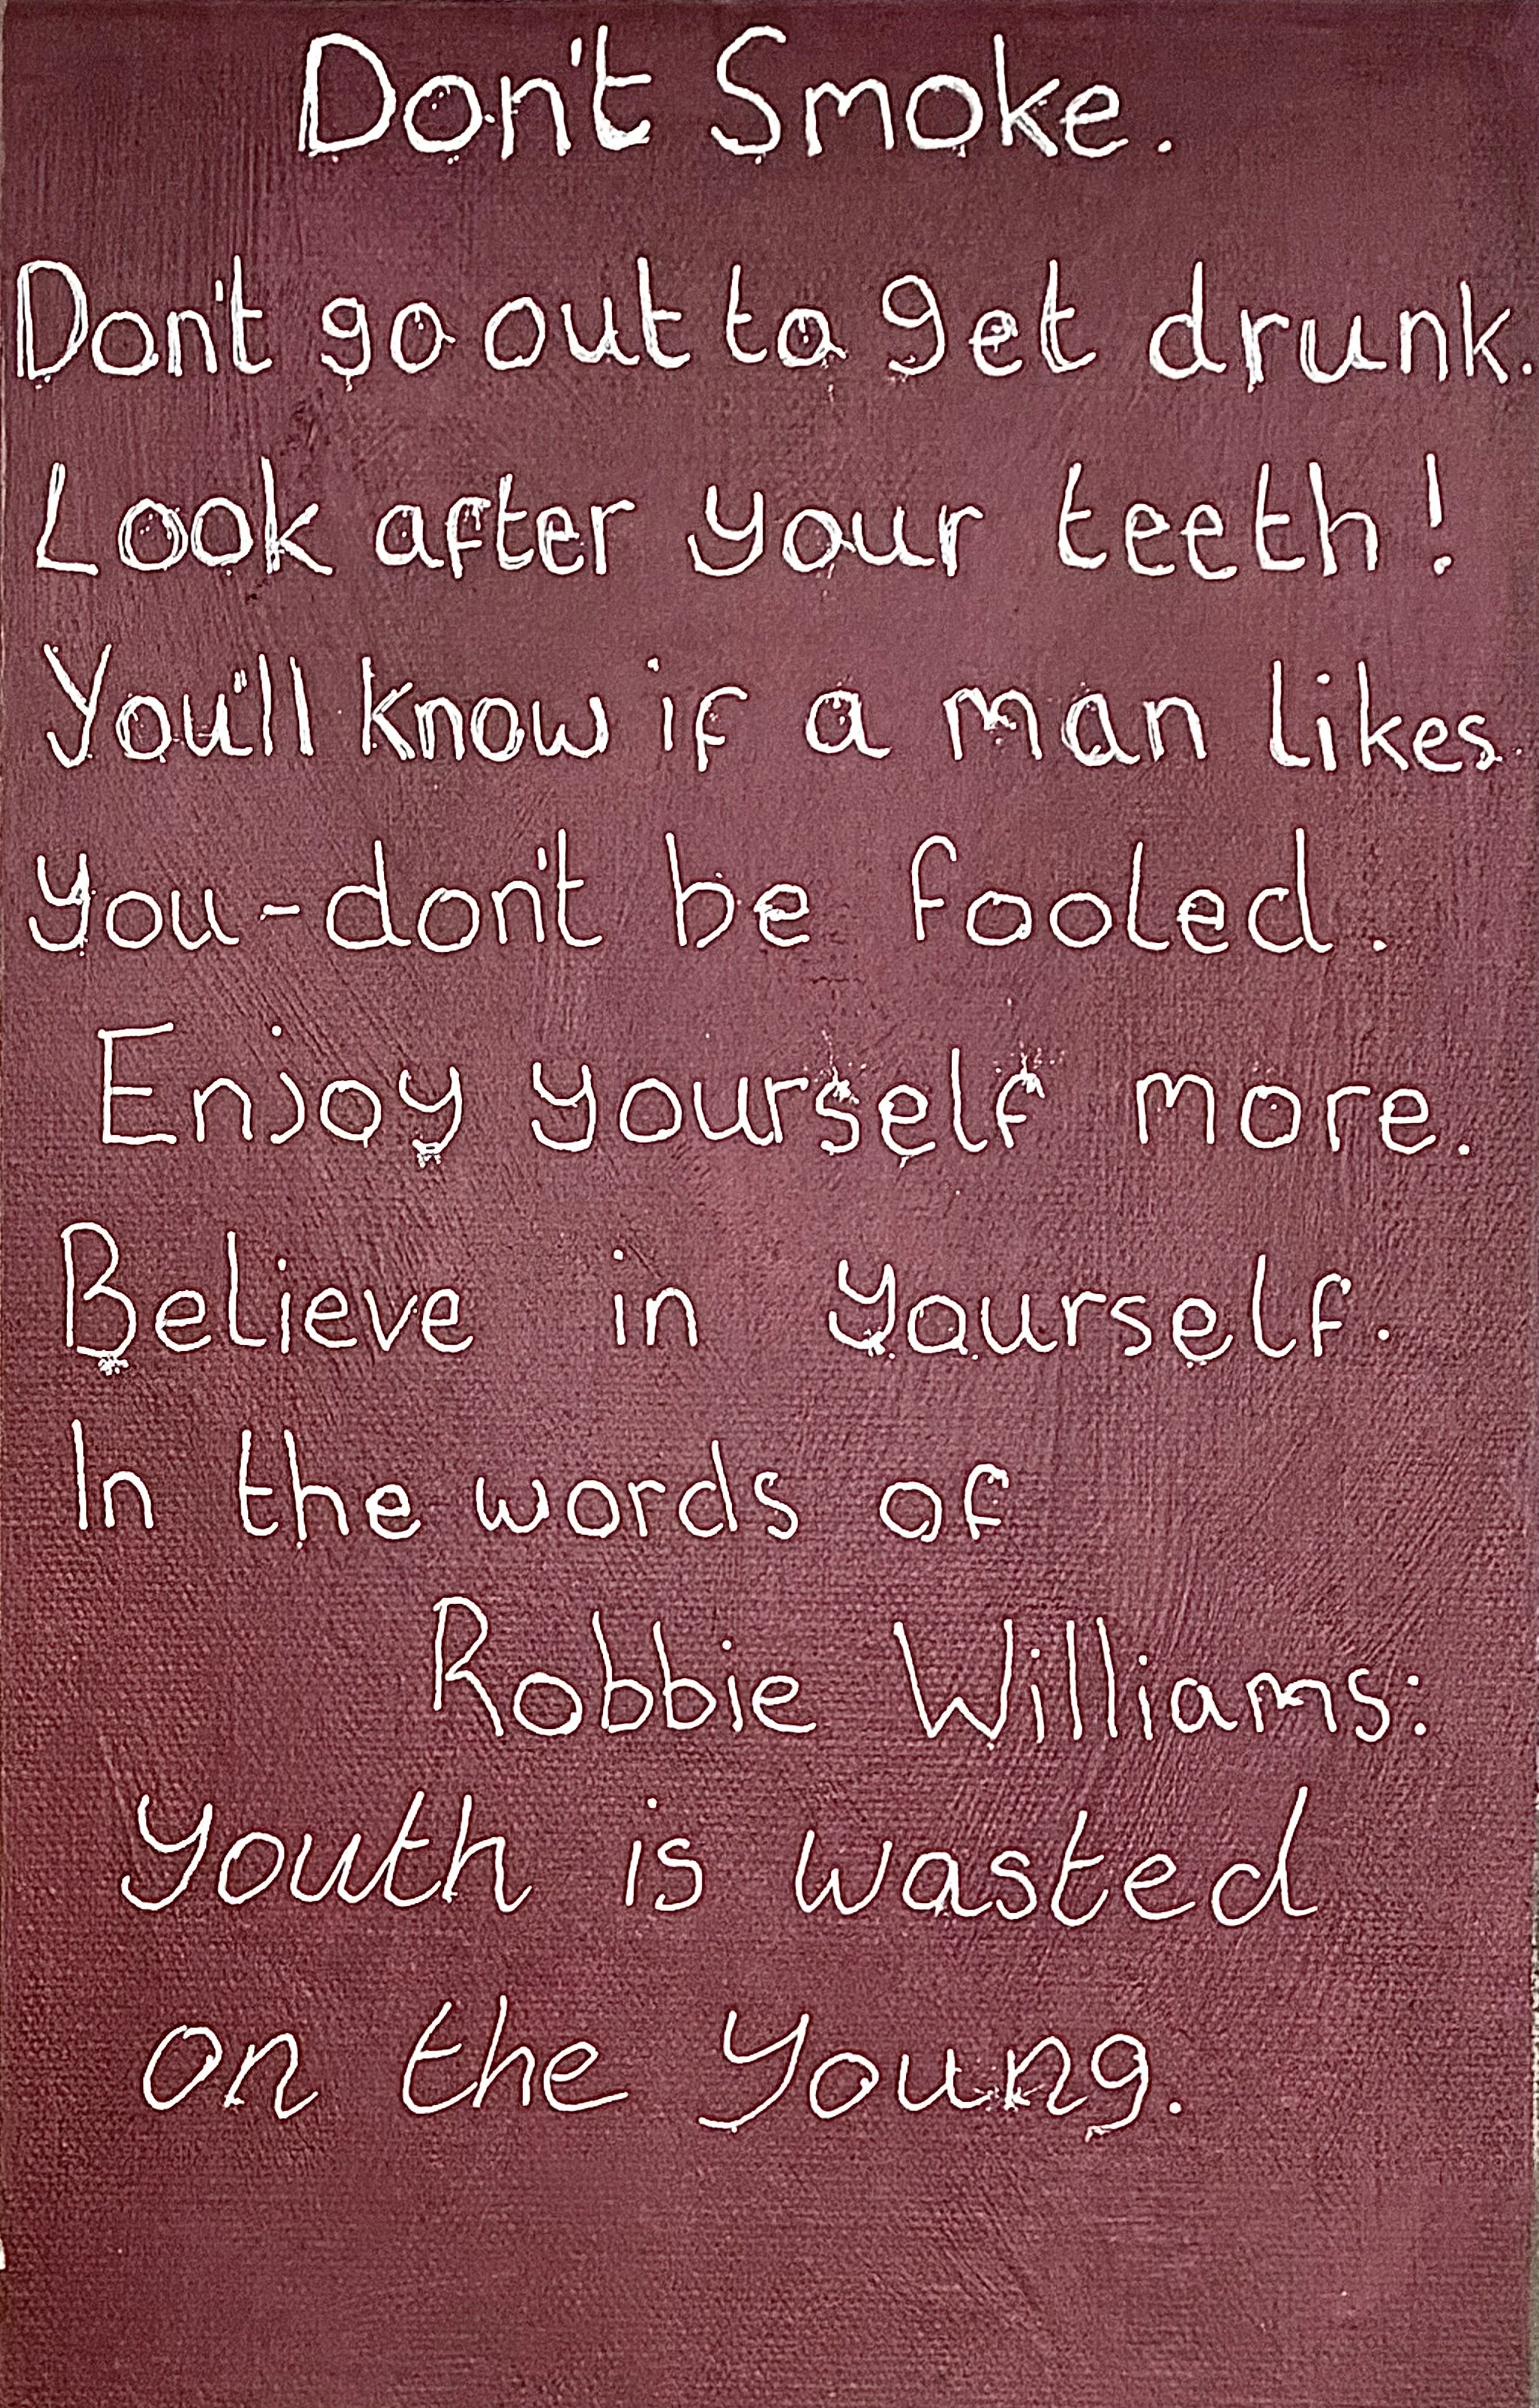 Don't Smoke.
Don't go out to get drunk.
Look after your teeth!
You'll know if a man likes
you-don't be fooled.
Enjoy yourself more.
Believe in yourself.
In the words of
Robbie Williams:
Youth is wasted
on the young.